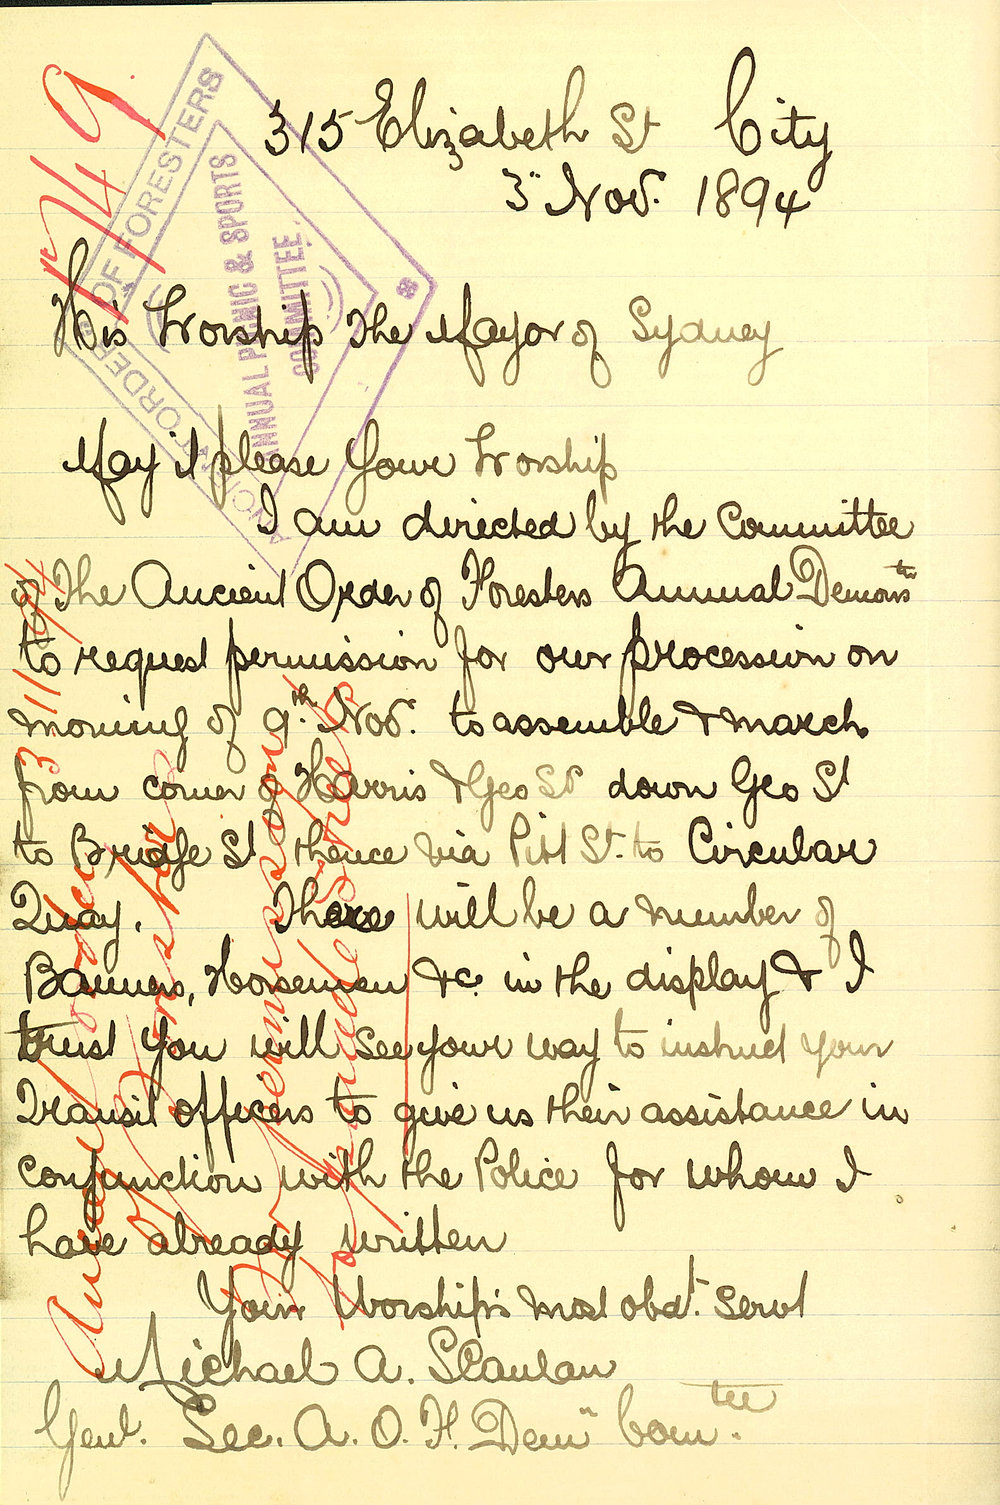 315 Elizabeth St City
3" Nov. 1894
His Worship The Mayor of Sydney
May it please Your Worship
I am directed by the Committee
of The Ancient Order of Foresters Annual Demonstn
to request permission for our procession on
morning of 9th Nov. to assemble & march
from corner of Harris & Geo St down Geo St
to Bridge St thence via Pitt St. to Circular
Quay. There will be a number of
Banners, Horsemen &c. in the display & I
trust you will see your way to instruct your
Transit officers to give us their assistance in
conjunction with the Police for whom I
have already written
Your Worship's most obdt. Servt
Michael A. Scanlan
Genl. Sec. A. O. F. Demn Comtee.
ANCIENT ORDER OF FORESTERS
ANNUAL PICNIC & SPORTS
COMMITTEE.
3/11/94